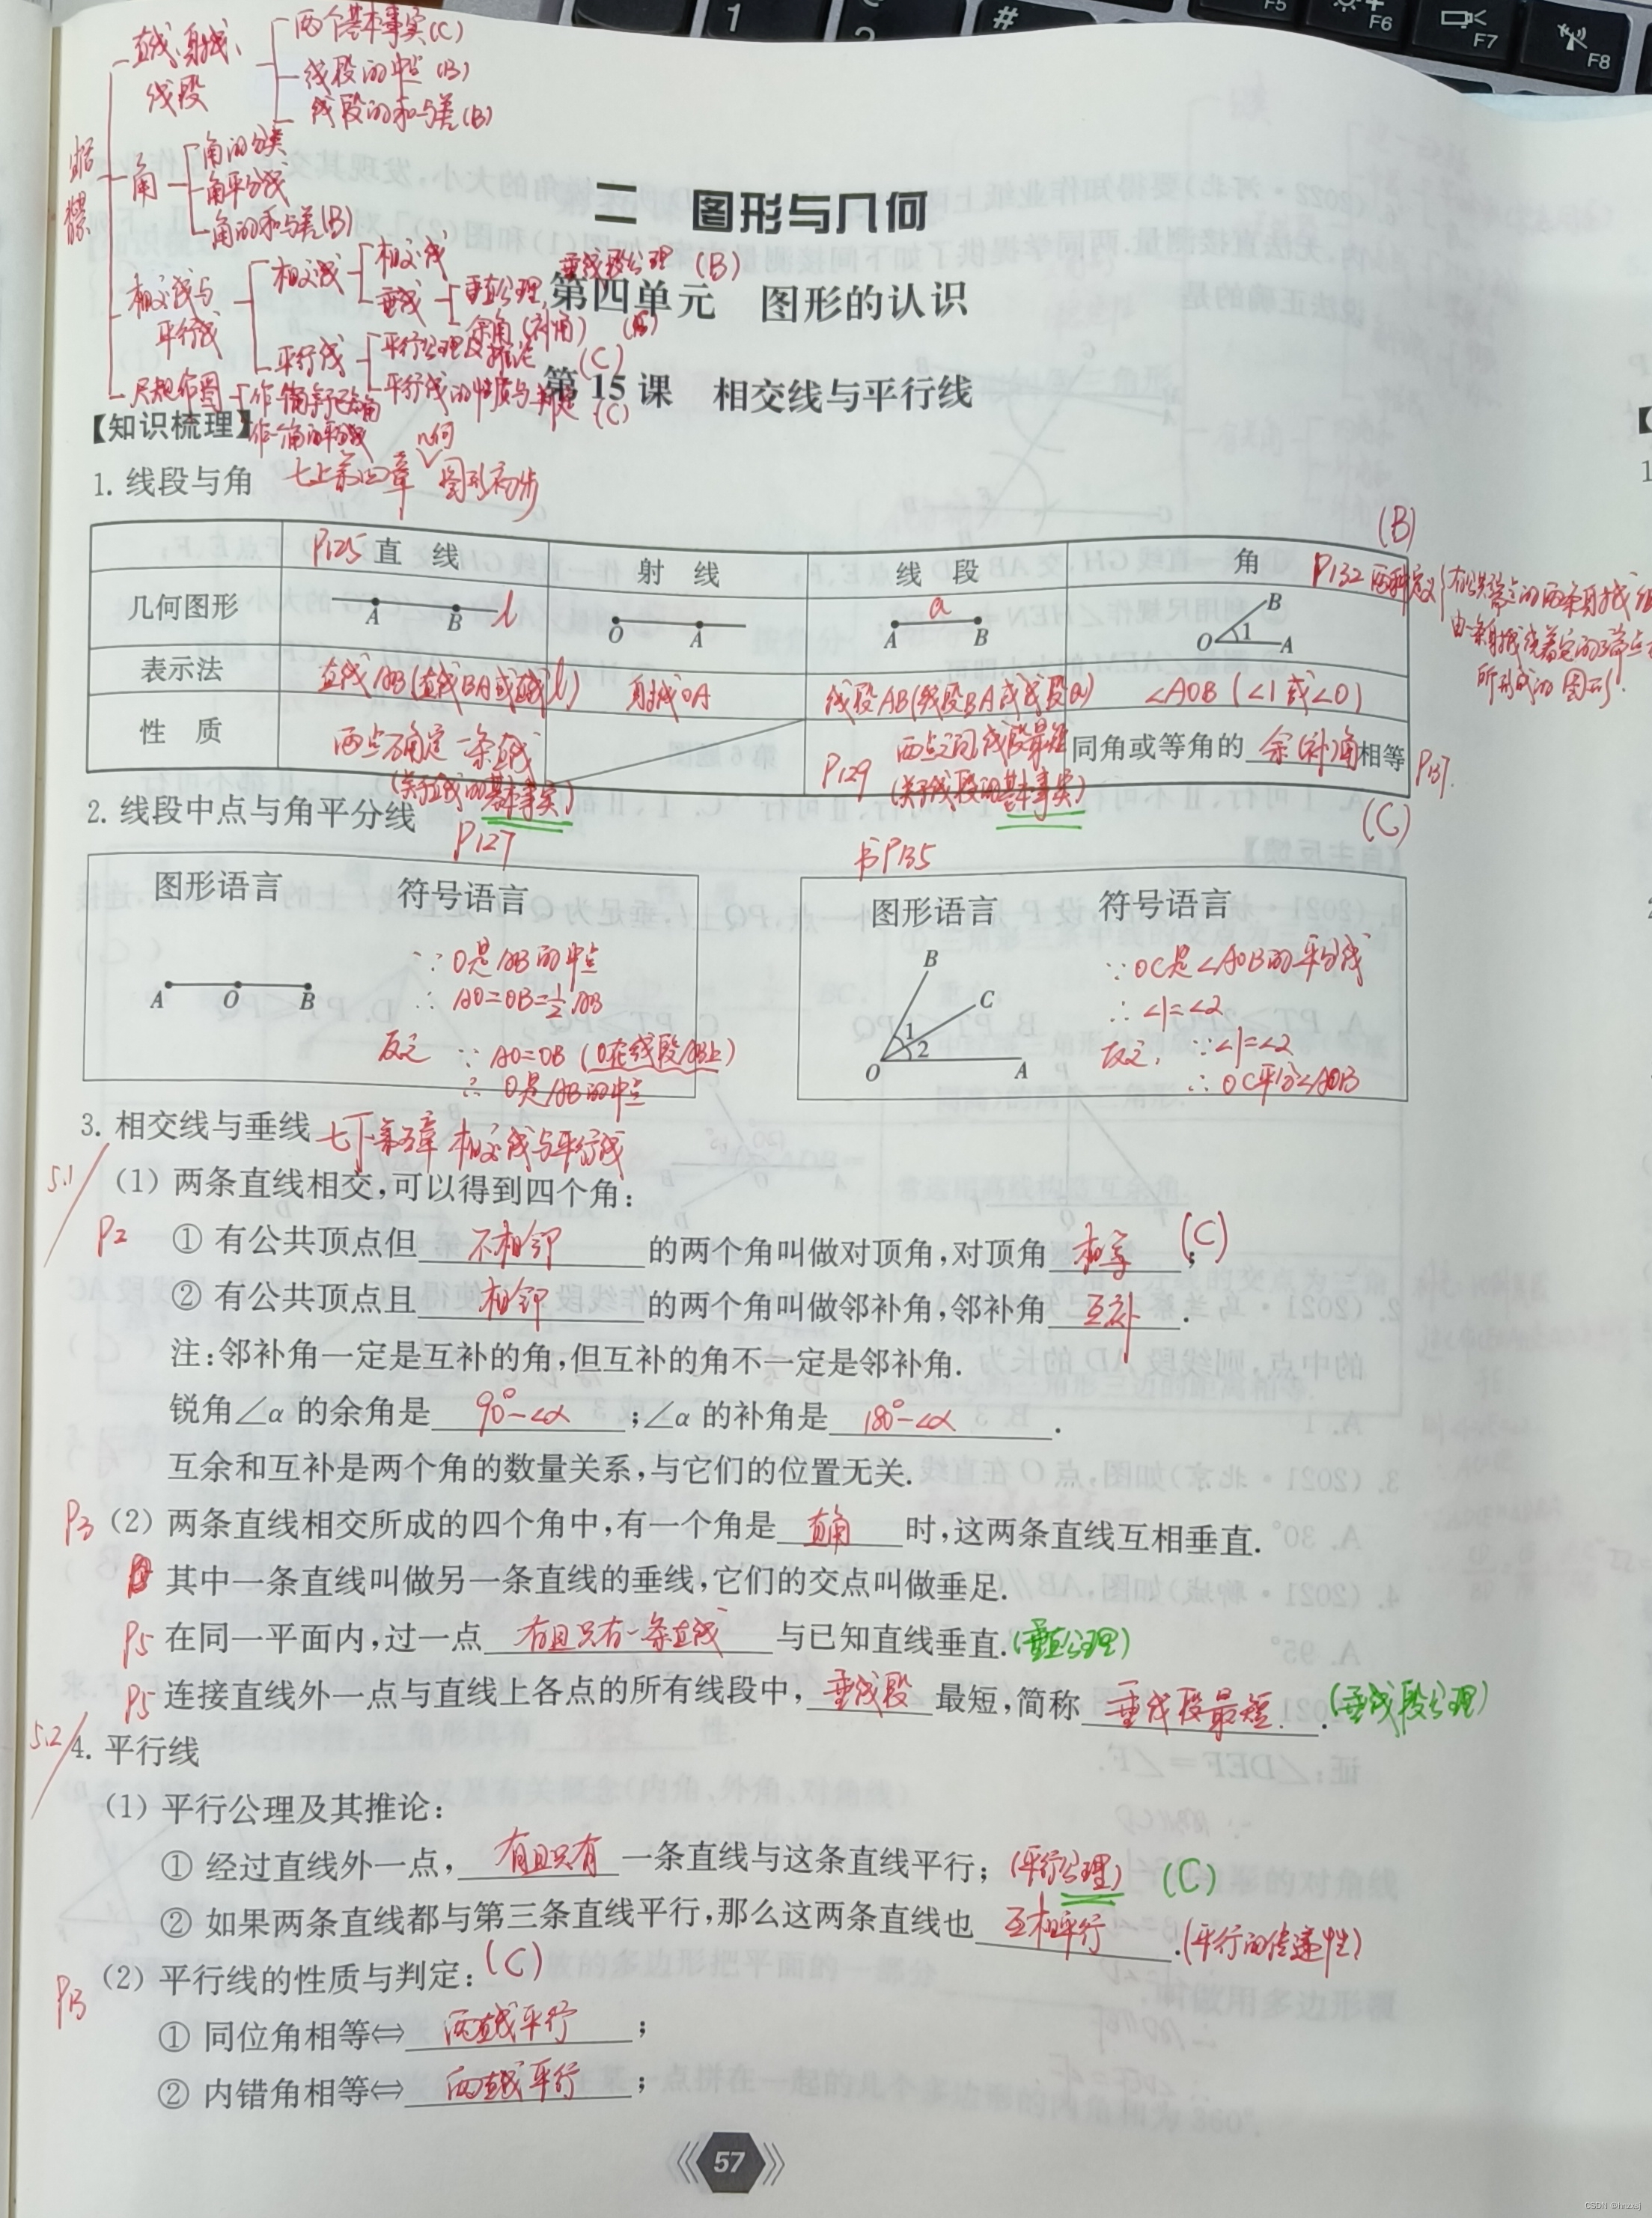 1
2
#
F5
F6
F7
F8
直线、射线、
线段
两个基本事实(C)
线段的中点(B)
线段的和与差(B)
角
角的分类
角平分线
角的和与差(B)
相交线与
平行线
相交线
相交线
垂线
垂直公理,垂线段公理(B)
余角(补角)
平行线
平行公理及推论(C)
平行线的性质与判定(C)
尺规作图
作一角等于已知角
作一角的平分线
二 图形与几何
第四单元 图形的认识
第15课 相交线与平行线
【知识梳理】
1. 线段与角 七上第四章 几何图形初步
(B)
P125 直 线 射 线 线 段 角 P132 两种定义
有公共端点的两条射线组
由一条射线绕着它的端点
所形成的图形.
几何图形 A B l O A a A B O 1 B A
表示法 直线AB(直线BA或直线l) 射线OA 线段AB(线段BA或线段a) ∠AOB(∠1或∠O)
性 质 两点确定一条直线 (关于直线的基本事实) P129 两点之间线段最短 (关于线段的基本事实) 同角或等角的余(补)角相等 P137.
(C)
2. 线段中点与角平分线
P127
书P135
图形语言 符号语言
A O B
∵O是AB的中点
∴AO=OB=½AB
反之 ∵AO=OB(O在线段AB上)
∴O是AB的中点
图形语言 符号语言
B C 1 2 O A
∵OC是∠AOB的平分线
∴∠1=∠2
反之, ∵∠1=∠2
∴OC平分∠AOB
3. 相交线与垂线 七下第五章 相交线与平行线
5.1
(1) 两条直线相交,可以得到四个角:
P2 ① 有公共顶点但不相邻的两个角叫做对顶角,对顶角相等; (C)
② 有公共顶点且相邻的两个角叫做邻补角,邻补角互补.
注:邻补角一定是互补的角,但互补的角不一定是邻补角.
锐角∠α的余角是90°-∠α;∠α的补角是180°-∠α.
互余和互补是两个角的数量关系,与它们的位置无关.
P3 (2) 两条直线相交所成的四个角中,有一个角是直角时,这两条直线互相垂直.
其中一条直线叫做另一条直线的垂线,它们的交点叫做垂足.
P5 在同一平面内,过一点有且只有一条直线与已知直线垂直.(垂直公理)
P5 连接直线外一点与直线上各点的所有线段中,垂线段最短,简称垂线段最短.(垂线段公理)
5.2 4. 平行线
(1) 平行公理及其推论:
① 经过直线外一点,有且只有一条直线与这条直线平行;(平行公理) (C)
② 如果两条直线都与第三条直线平行,那么这两条直线也互相平行.(平行的传递性)
P13 (2) 平行线的性质与判定:(C)
① 同位角相等⇔两直线平行;
② 内错角相等⇔两直线平行;
57
CSDN @hnzxsj